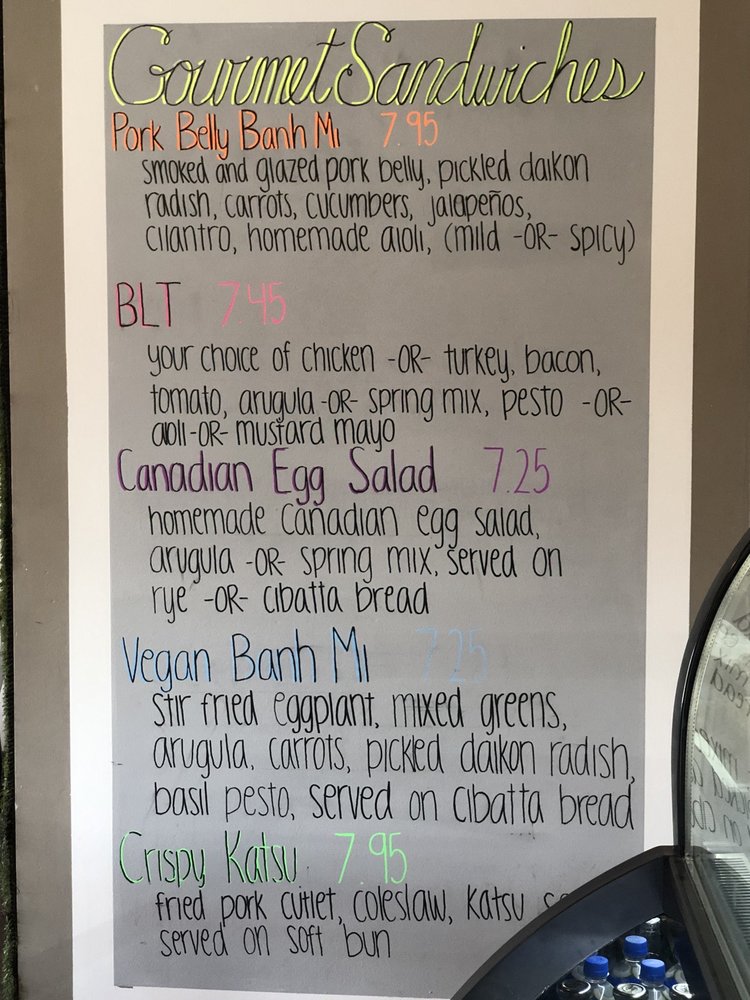 Gourmet Sandwiches
Pork Belly Banh Mi 7.95
smoked and glazed pork belly, pickled daikon
radish, carrots, cucumbers, jalapeños,
cilantro, homemade aioli, (mild -OR- spicy)
BLT 7.45
your choice of chicken -OR- turkey, bacon,
tomato, arugula -OR- spring mix, pesto -OR-
aoli -OR- mustard mayo
Canadian Egg Salad 7.25
homemade Canadian egg salad,
arugula -OR- spring mix, served on
rye -OR- cibatta bread
Vegan Banh Mi 7.25
stir fried eggplant, mixed greens,
arugula, carrots, pickled daikon radish,
basil pesto, served on cibatta bread
Crispy Katsu 7.95
fried pork cutlet, coleslaw, katsu
served on soft bun